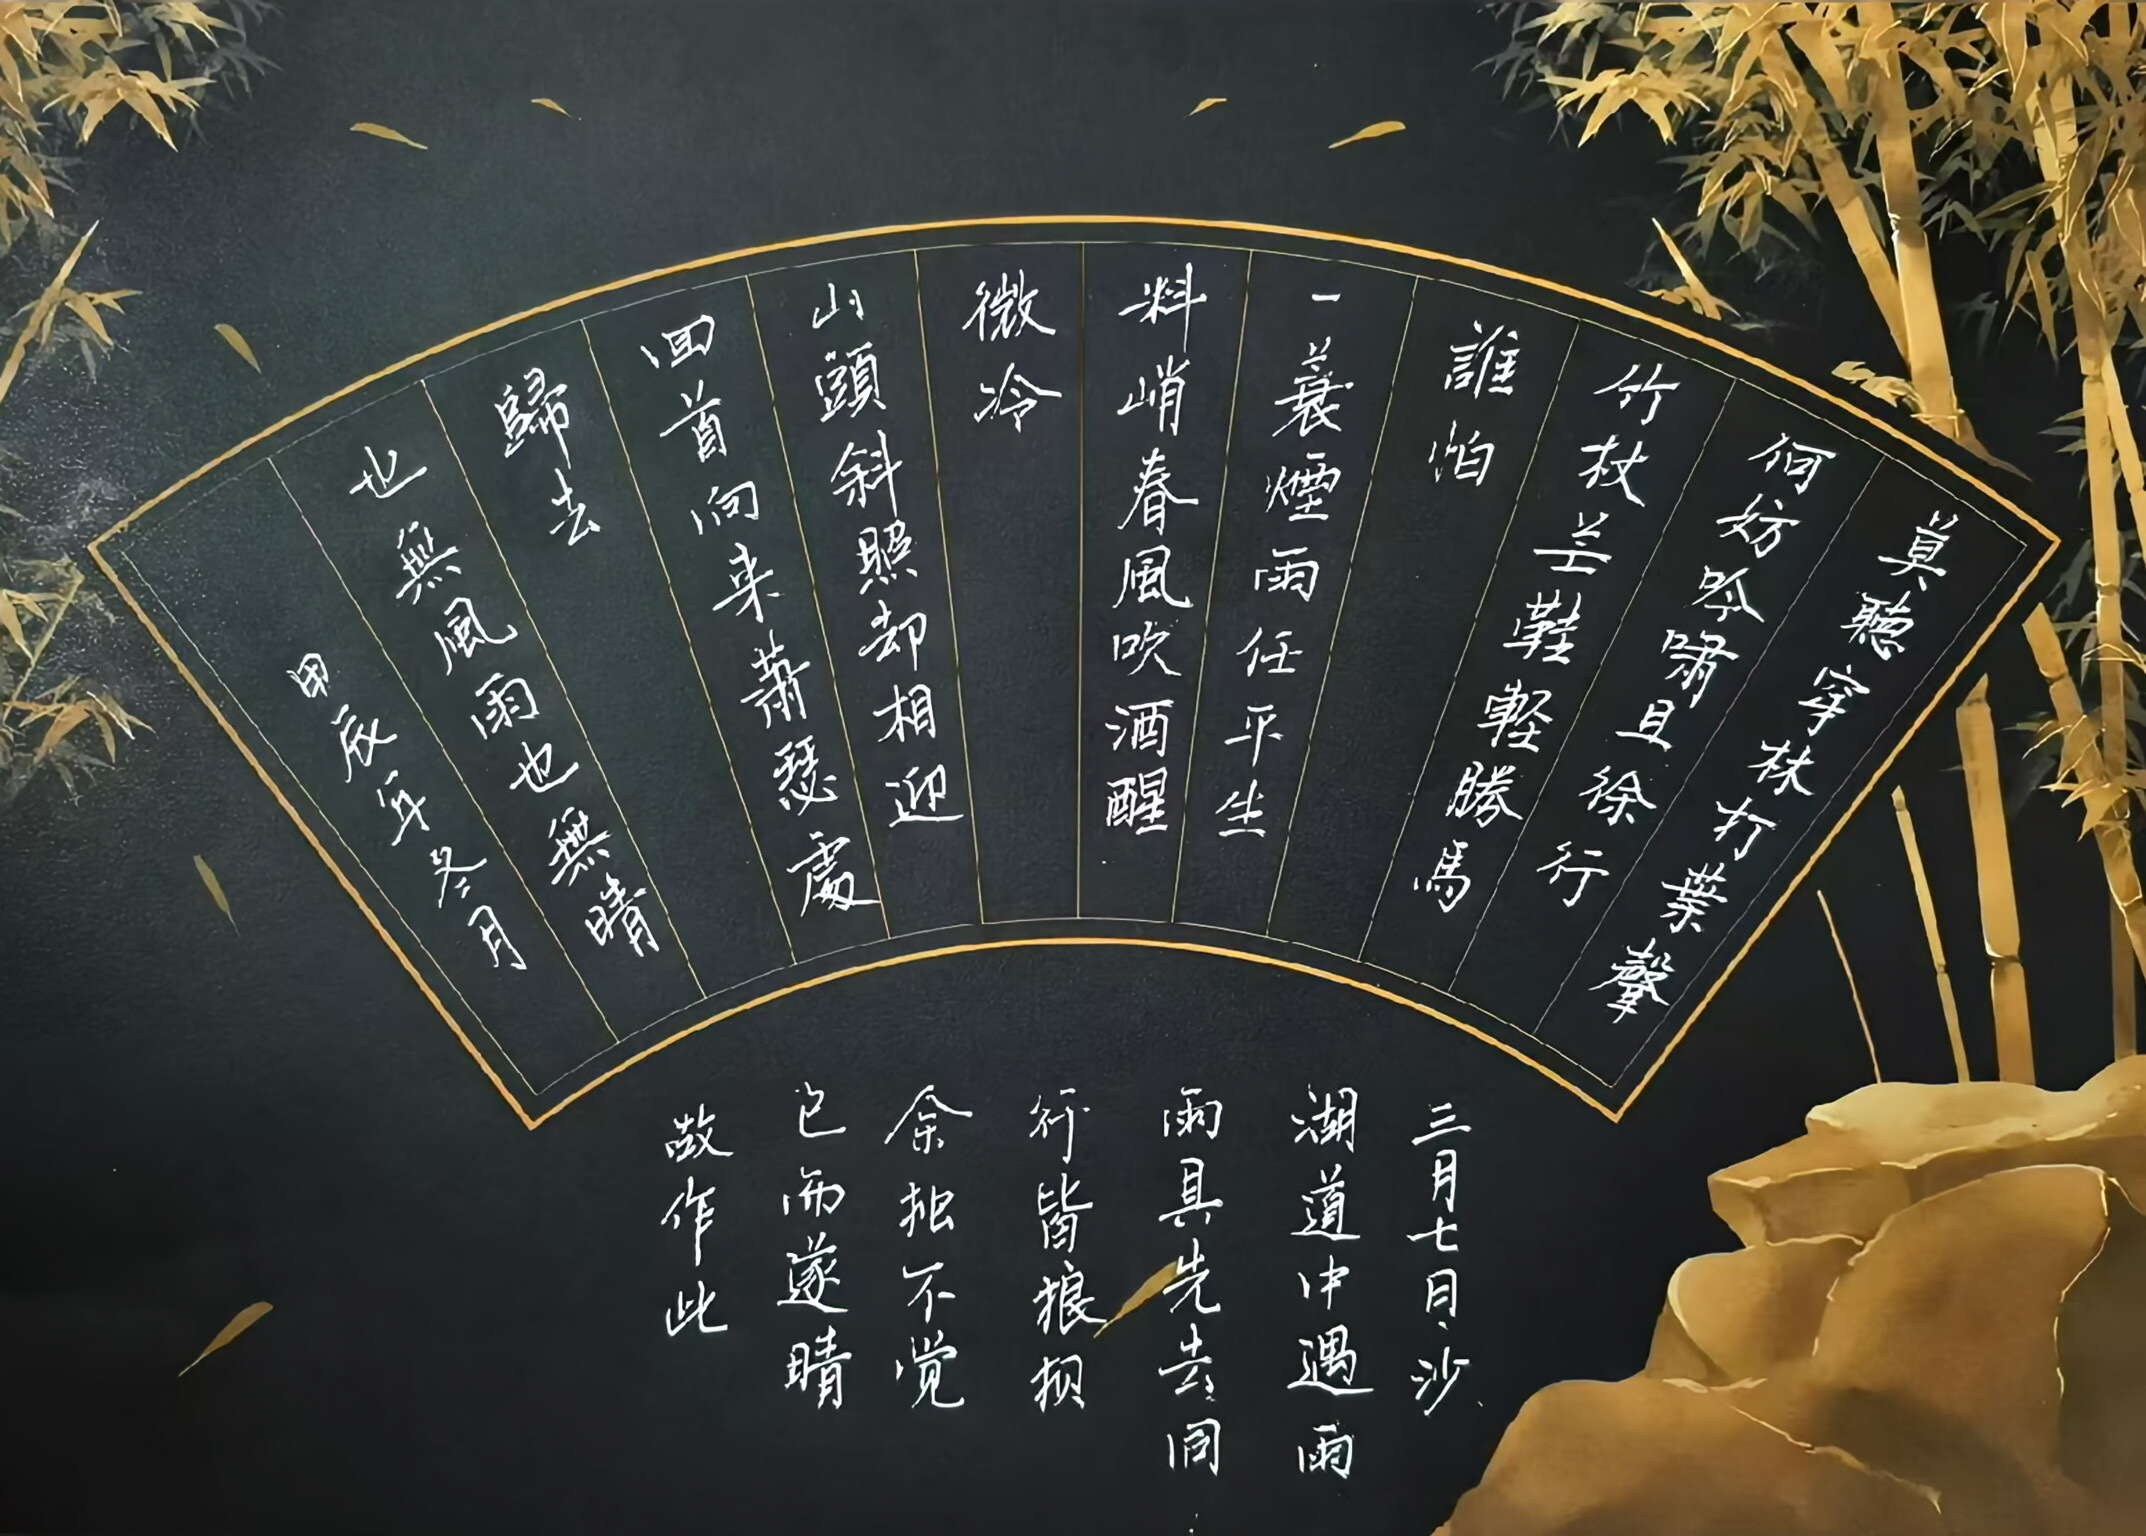 莫聽穿林打葉聲
何妨吟嘯且徐行
竹杖芒鞋軽勝馬
誰怕
一蓑煙雨任平生
料峭春風吹酒醒
微冷
山頭斜照却相迎
回首向来蕭瑟處
歸去
也無風雨也無晴
甲辰年冬月
三月七日沙
湖道中遇雨
雨具先去同
行皆狼狽
余独不覚
已而遂晴
故作此